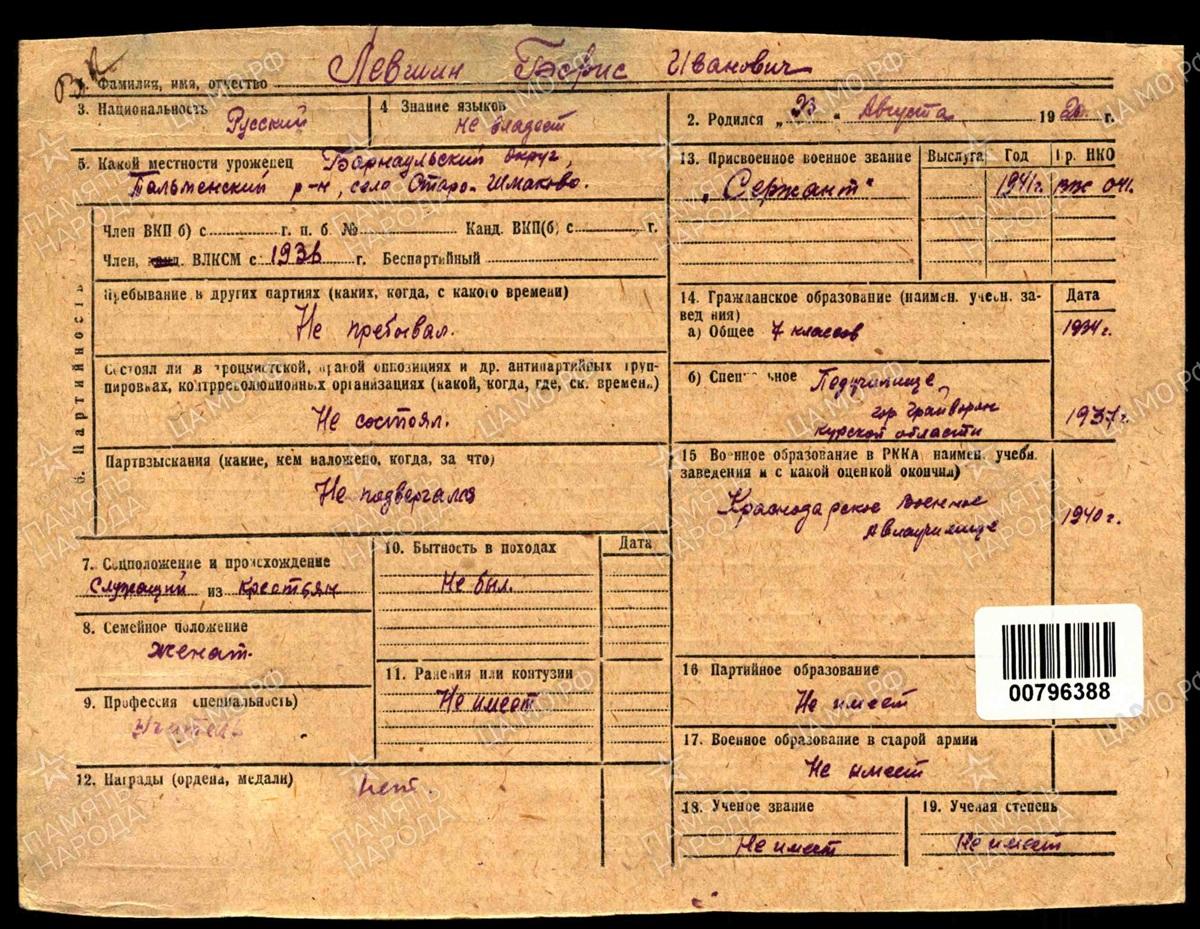 1. Фамилия, имя, отчество Левшин Борис Иванович
3. Национальность Русский
4 Знание языков не владеет
2. Родился „23“ Августа 1920 г.
5. Какой местности уроженец Барнаульский округ,
Тальменский р-н, село Старо-Шмаково.
6. Партийность
Член ВКП б) с г. п. б № Канд. ВКП(б) с г.
Член, канд. ВЛКСМ с 1936 г. Беспартийный
Пребывание в других партиях (каких, когда, с какого времени)
Не пребывал.
Состоял ли в троцкистской, правой оппозициях и др. антипартийных груп-
пировках, контрреволюционных организациях (какой, когда, где, ск. времени)
Не состоял.
Партвзыскания (какие, кем наложено, когда, за что)
Не подвергался
7. Соцположение и происхождение
Служащий из Крестьян
8. Семейное положение
женат.
9. Профессия специальность)
Учитель
10. Бытность в походах Дата
Не был.
11. Ранения или контузии
Не имеет
12. Награды (ордена, медали) нет.
13. Присвоенное военное звание Выслуга Год Пр. НКО
„Сержант“ 1941г. 041.
14. Гражданское образование (наимен. учебн. за- Дата
вед ния)
а) Общее 7 классов 1934г.
б) Специальное Педучилище,
гор Грайворон
Курской области 1937г.
15 Военное образование в РККА наимен. учебн.
заведения и с какой оценкой окончил)
Краснодарское военное
Авиаучилище 1940г.
16 Партийное образование
Не имеет
17. Военное образование в старой армии
Не имеет
18. Ученое звание
Не имеет
19. Ученая степень
Не имеет
00796388
ПАМЯТЬ
НАРОДА
ЦАМО.РФ